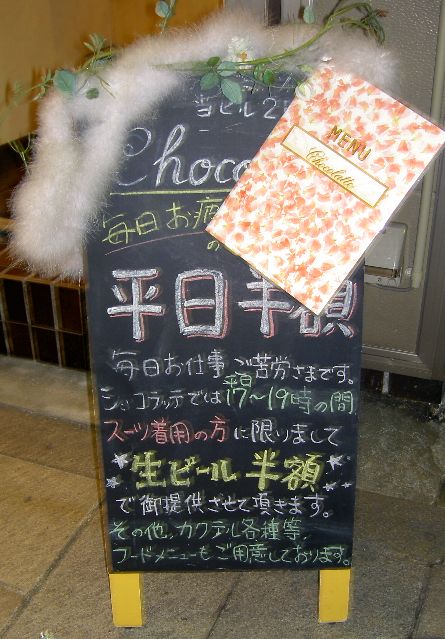 当ビル2
Choco
MENU
Chocolatte
毎日お疲
の
平日半額
毎日お仕事ご苦労さまです。
ショコラッテでは平日17〜19時の間
スーツ着用の方に限りまして
生ビール半額
で御提供させて頂きます。
その他、カクテル各種等、
フードメニューもご用意しております。